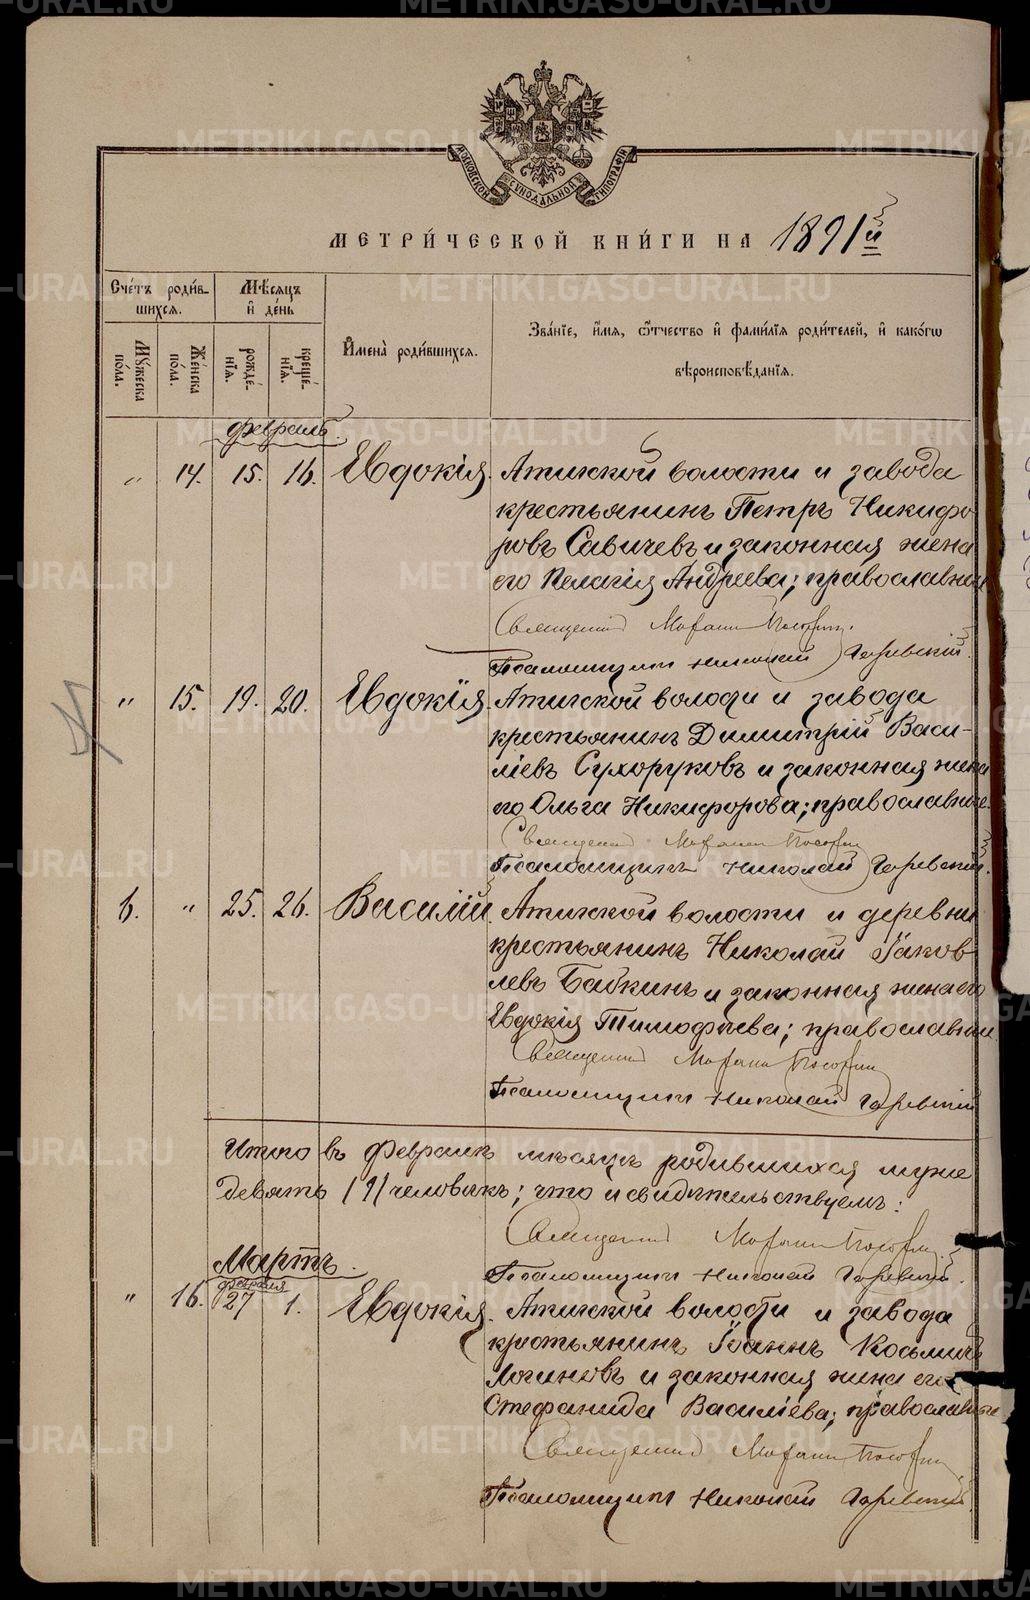 МОСКОВСКОЙ СѴНОДАЛЬНОЙ ТИПОГРАФІИ
МЕТРИ́ЧЕСКОЙ КНИ́ГИ НА 1891й
Сче́тъ роди́вшихся.
Мѣ́сяцъ и҆ де́нь
И҆мена̀ роди́вшихся.
Зва́нїе, и҆́мя, ѻ҆́тчество и҆ фами́лїя роди́телей, и҆ како́гѡ вѣроисповѣ́данїя.
Мꙋ́жеска по́ла.
Же́нска по́ла.
рожде́нїя.
креще́нїя.
Февраль.
" 14. 15. 16. Евдокія. Атигской волости и завода
крестьянинъ Петръ Никифо-
ровъ Савичевъ и законная жена
его Пелагія Андреева; православные
Священник
Псаломщикъ Николай Гаревскій.
" 15. 19. 20. Евдокія. Атигской волости и завода
крестьянинъ Димитрій Васи-
ліевъ Сухоруковъ и законная жена
его Ольга Никифорова; православные.
Священник
Псаломщикъ Николай Гаревскій.
6. " 25. 26. Василій. Атигской волости и деревни
крестьянинъ Николай Іаков-
левъ Бабкинъ и законная жена его
Евдокія Тимофѣева; православные.
Священник
Псаломщикъ Николай Гаревскій
Итого въ Февралѣ мѣсяцѣ родившихся
девять /9/ человѣкъ; что и свидѣтельствуемъ:
Священник
Псаломщикъ Николай Гаревскій.
Мартъ.
февраля
" 16. 27 1. Евдокія. Атигской волости и завода
крестьянинъ Іоаннъ Косьминъ
Логиновъ и законная жена его
Стефанида Василіева; православные
Священник
Псаломщикъ Николай Гаревскій.
METRIKI.GASO-URAL.RU